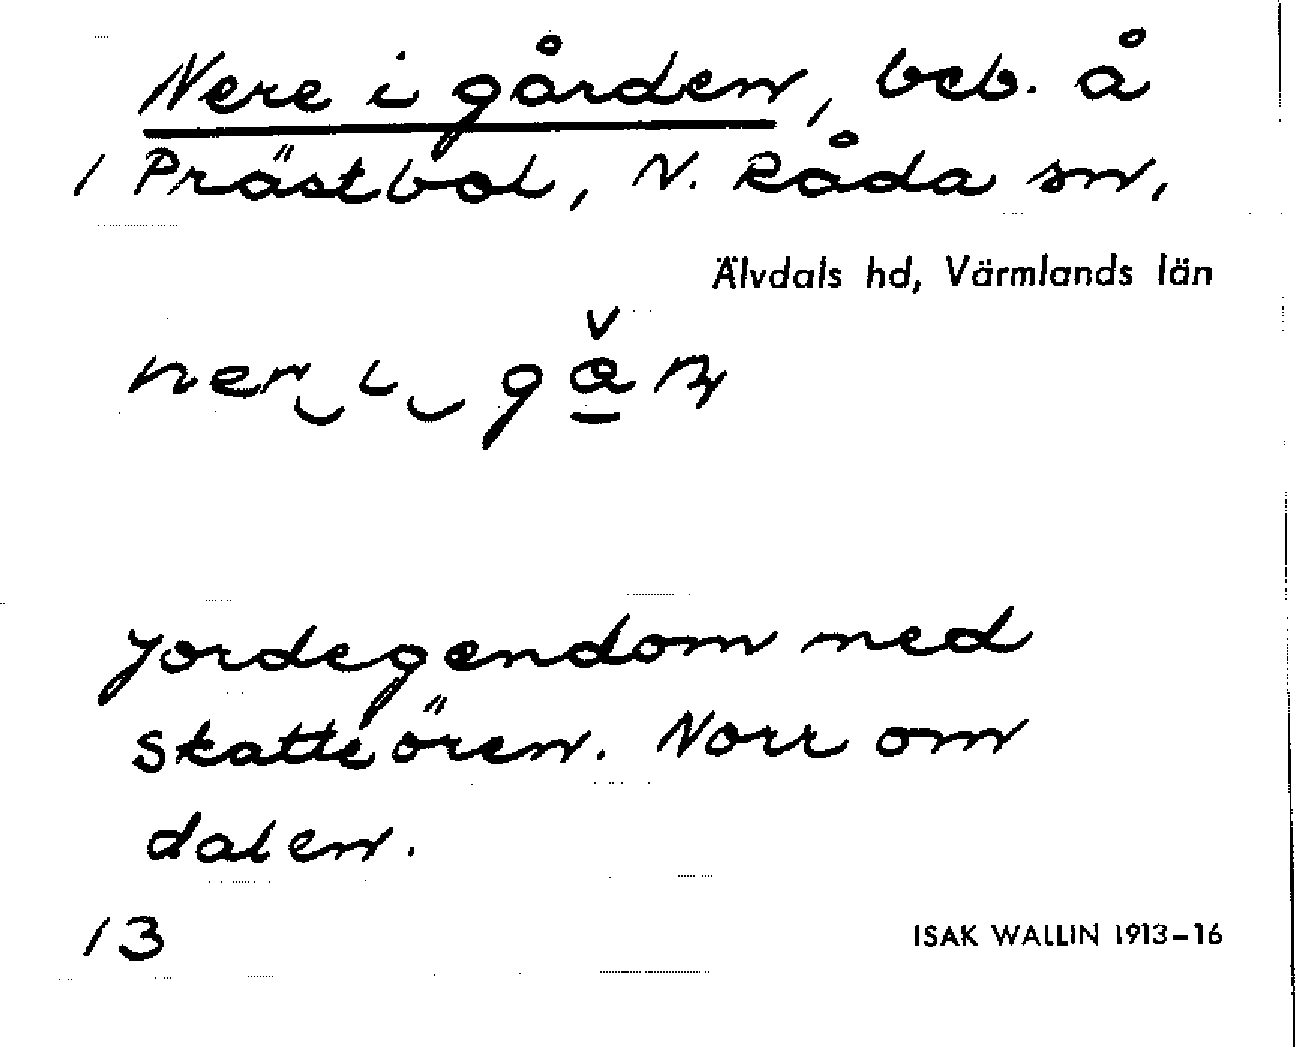 Nere i gården, beb. å
/ Prästbol, N. Råda sn,
Älvdals hd, Värmlands län
ner i g
Jordegendom med
skatteören. Norr om
dalen.
/3
ISAK WALLIN 1913-16